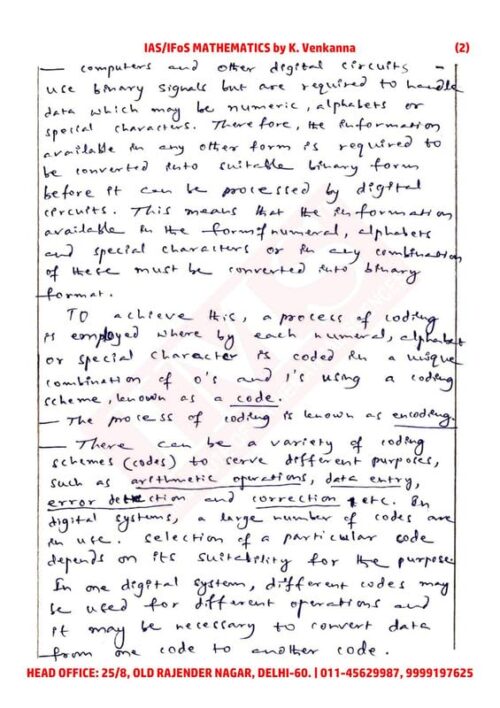 IAS/IFoS MATHEMATICS by K. Venkanna (2)
— computers and other digital circuits -
use binary signals but are required to handle
data which may be numeric, alphabets or
special characters. Therefore, the information
available in any other form is required to
be converted into suitable binary form
before it can be processed by digital
circuits. This means that the information
available in the form of numeral, alphabets
and special characters or in any combination
of these must be converted into binary
format.
TO achieve this, a process of coding
is employed where by each numeral, alphabet
or special character is coded in a unique
combination of 0's and 1's using a coding
scheme, known as a code.
— The process of coding is known as encoding.
— There can be a variety of coding
schemes (codes) to serve different purposes,
such as arithmetic operations, data entry,
error detection and correction etc. In
digital systems, a large number of codes are
in use. selection of a particular code
depends on its suitability for the purpose.
In one digital system, different codes may
be used for different operations and
it may be necessary to convert data
from one code to another code.
HEAD OFFICE: 25/8, OLD RAJENDER NAGAR, DELHI-60. | 011-45629987, 9999197625